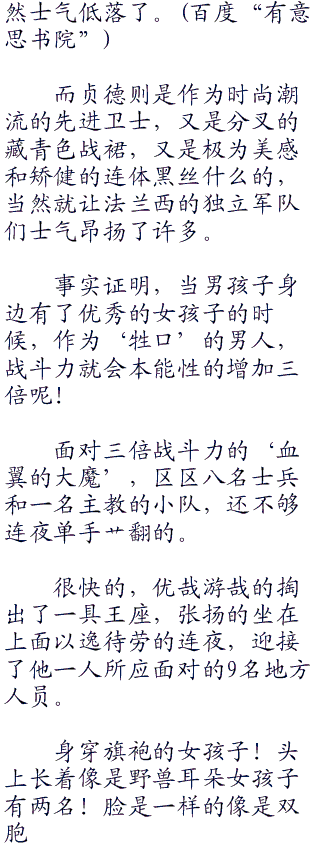 然士气低落了。(百度“有意
思书院”)
而贞德则是作为时尚潮
流的先进卫士，又是分叉的
藏青色战裙，又是极为美感
和矫健的连体黑丝什么的，
当然就让法兰西的独立军队
们士气昂扬了许多。
事实证明，当男孩子身
边有了优秀的女孩子的时
候，作为‘牲口’的男人，
战斗力就会本能性的增加三
倍呢！
面对三倍战斗力的‘血
翼的大魔’，区区八名士兵
和一名主教的小队，还不够
连夜单手艹翻的。
很快的，优哉游哉的掏
出了一具王座，张扬的坐在
上面以逸待劳的连夜，迎接
了他一人所应面对的9名地方
人员。
身穿旗袍的女孩子！头
上长着像是野兽耳朵女孩子
有两名！脸是一样的像是双
胞